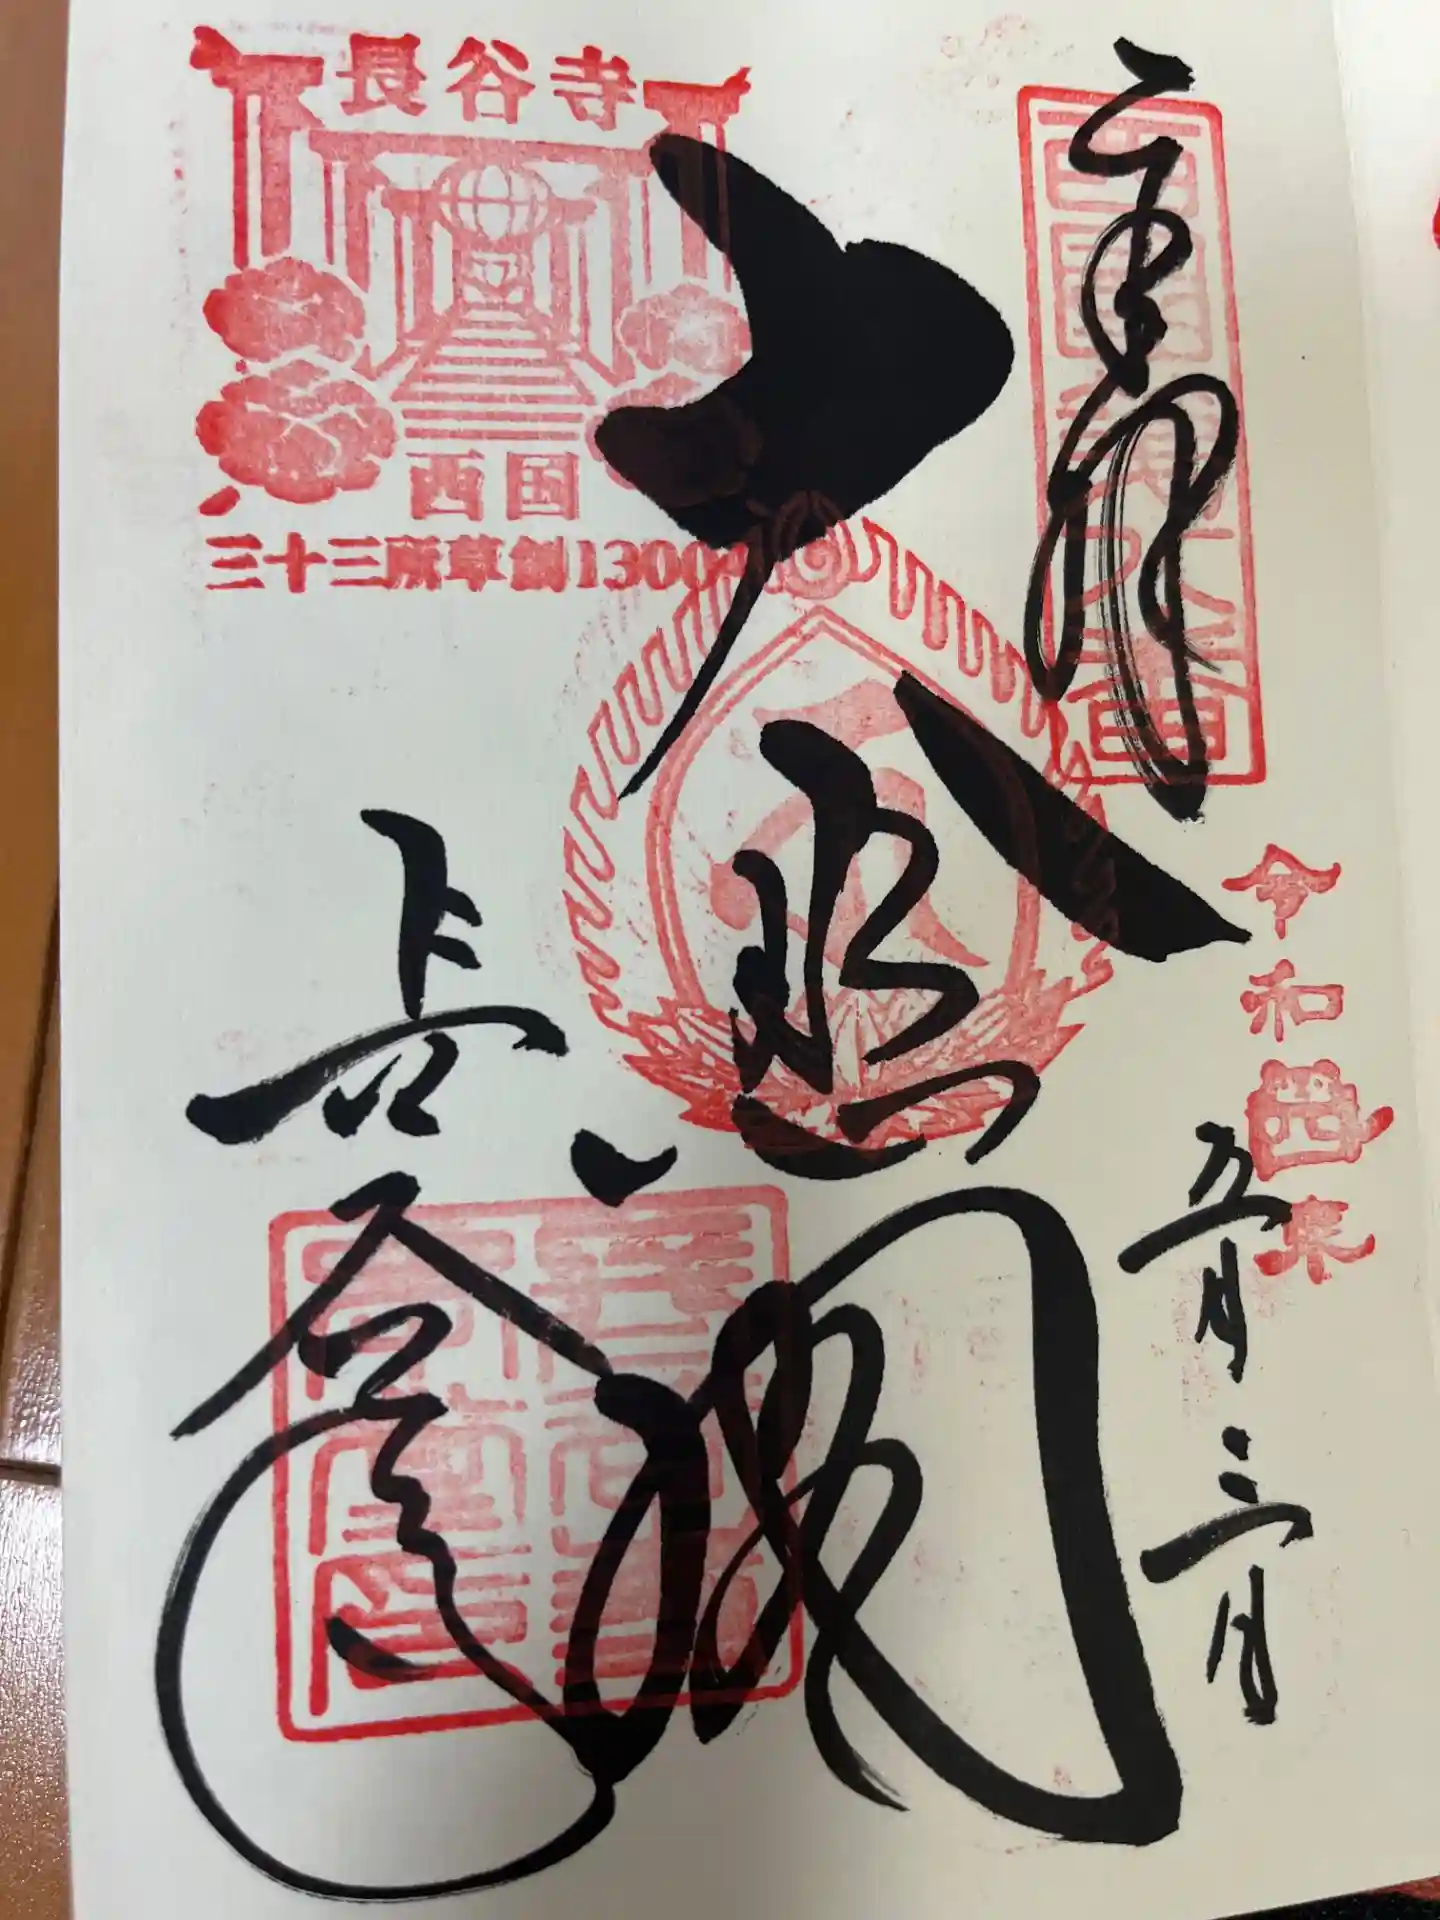 長谷寺
西国
三十三所草創1300
奉拝
西国第八番
大悲閣
長谷寺
令和四年
五月三日